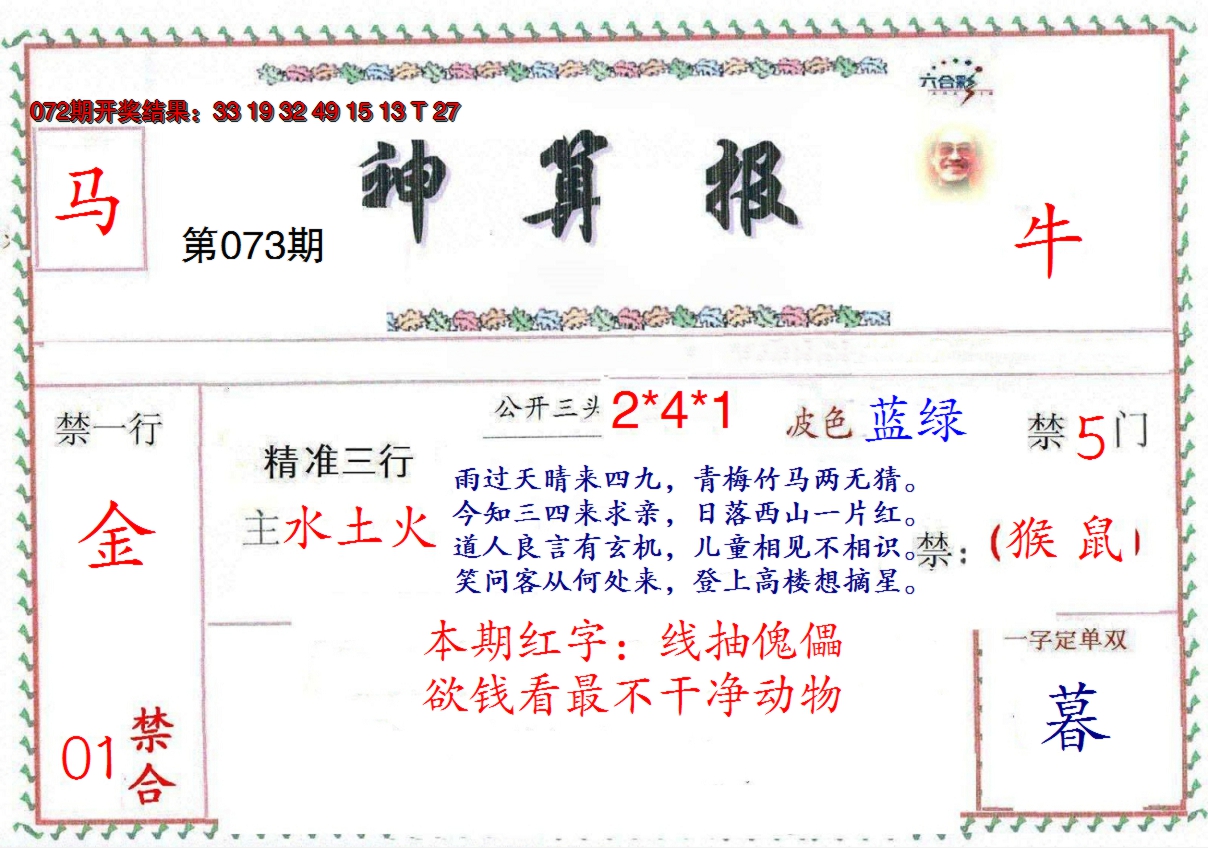 六合彩
072期开奖结果：33 19 32 49 15 13 T 27
神算报
马
第073期
牛
禁一行
金
01
禁合
精准三行
主水土火
公开三头 2*4*1
波色 蓝绿
禁5门
雨过天晴来四九，青梅竹马两无猜。
今知三四来求亲，日落西山一片红。
道人良言有玄机，儿童相见不相识。
笑问客从何处来，登上高楼想摘星。
禁：(猴 鼠)
本期红字：线抽傀儡
欲钱看最不干净动物
一字定单双
暮